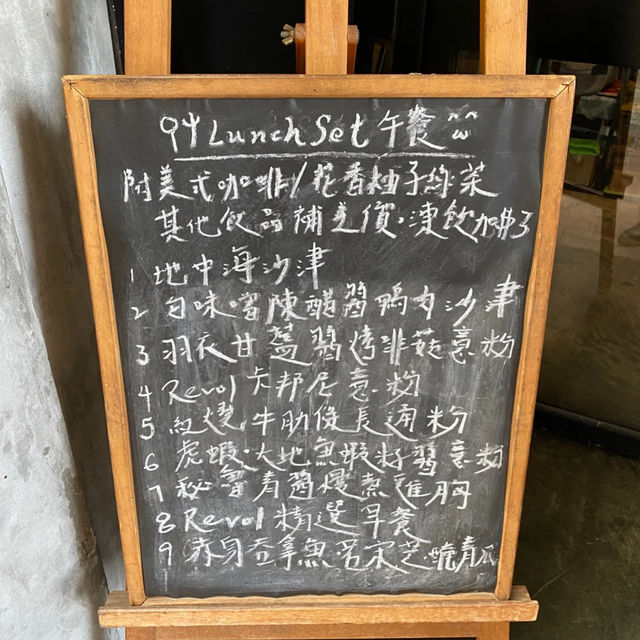 94 Lunch Set 午餐
附美式咖啡/花香柚子綠茶
其他飲品補差價·凍飲加$3
1 地中海沙津
2 陳醋醬鴨肉沙津
3 羽衣甘藍醬烤啡菇意粉
4 Revol 卡邦尼意粉
5 紅燒牛肋條長通粉
6 虎蝦·大地魚蝦籽醬意粉
7 秘魯青醬慢煮雞胸
8 Revol 精選早餐
9 赤身吞拿魚芝青瓜